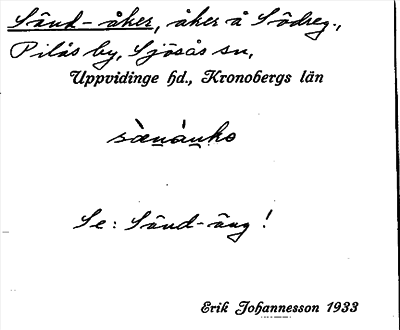 Sänd-åker, åker å Södreg.,
Pilås by, Sjösås sn,
Uppvidinge hd., Kronobergs län
Se: Sänd-äng!
Erik Johannesson 1933